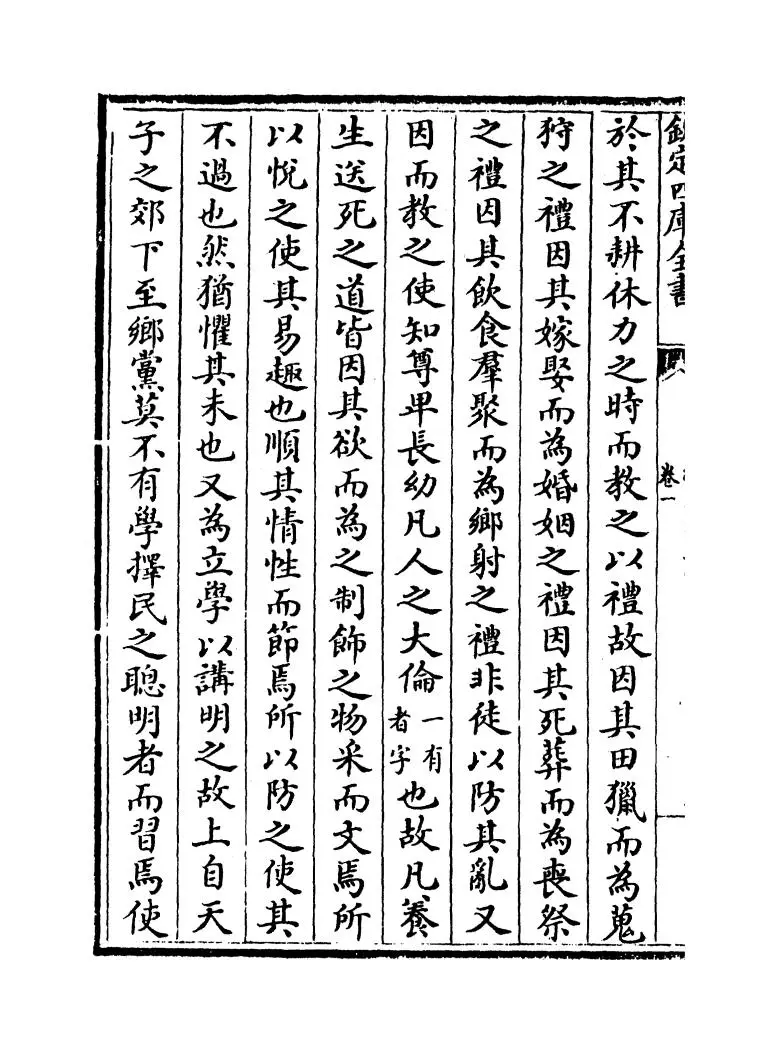 欽定四庫全書
卷一
於其不耕休力之時而教之以禮故因其田獵而為蒐
狩之禮因其嫁娶而為婚姻之禮因其死葬而為喪祭
之禮因其飲食羣聚而為鄉射之禮非徒以防其亂又
因而教之使知尊卑長幼凡人之大倫一有者字也故凡養
生送死之道皆因其欲而為之制飾之物采而文焉所
以悅之使其易趣也順其情性而節焉所以防之使其
不過也然猶懼其未也又為立學以講明之故上自天
子之郊下至鄉黨莫不有學擇民之聰明者而習焉使